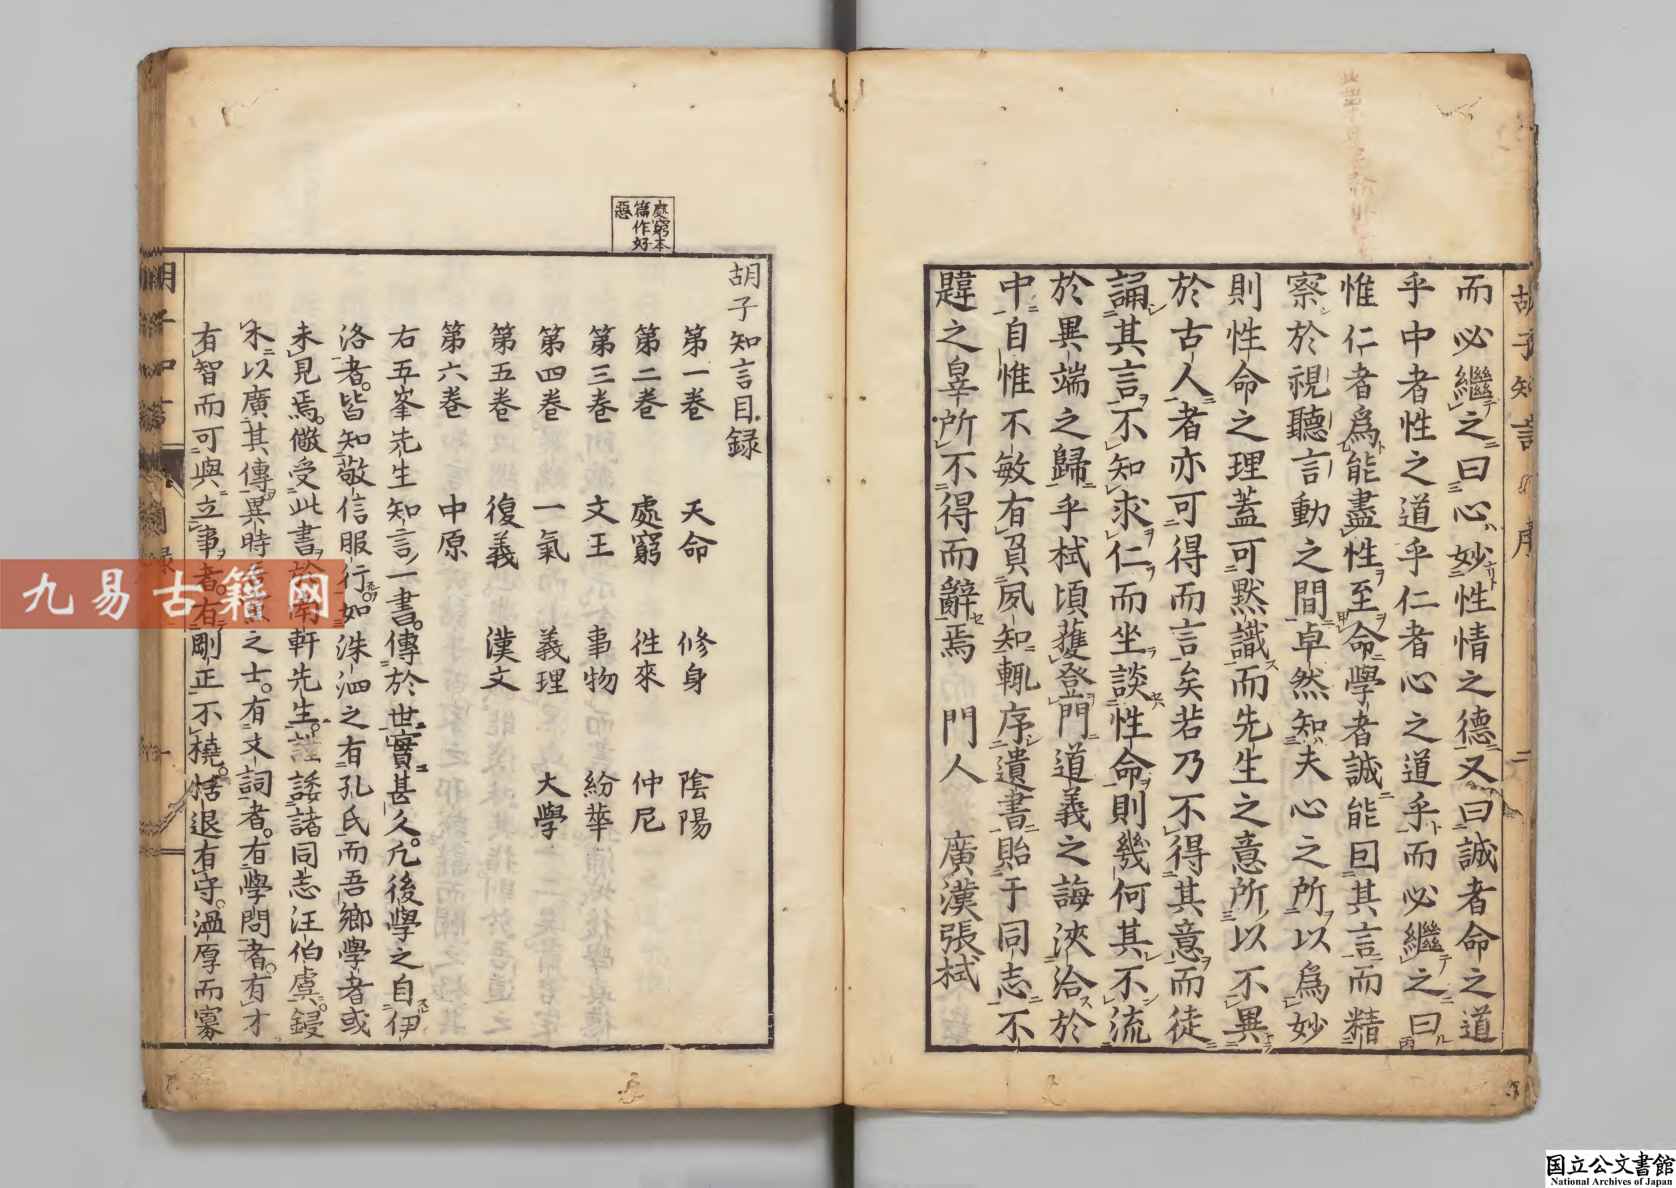 而必繼之曰心妙性情之德又曰誠者命之道
乎中者性之道乎仁者心之道乎而必繼之曰
惟仁者爲能盡性至命學者誠能因其言而精
察於視聽言動之間卓然知夫心之所以爲妙
則性命之理蓋可默識而先生之意所以不異
於古人者亦可得而言矣若乃不得其意而徒
誦其言不知求仁而坐談性命則幾何其不流
於異端之歸乎栻頃獲登門道義之誨浹洽於
中自惟不敏有負夙知輒序遺書貽于同志不
韙之辠所不得而辭焉 門人 廣漢張栻
胡子知言 序 二
處窮本
篇作好
惡
胡子知言目録
第一巻 天命 修身 陰陽
第二巻 處窮 徃來 仲尼
第三巻 文王 事物 紛華
第四巻 一氣 義理 大學
第五巻 復義 漢文
第六巻 中原
右五峯先生知言一書傳於世實甚久凡後學之自伊
洛者皆知敬信服行如洙泗之有孔氏而吾鄉學者或
未見焉儆受此書於南軒先生謹諉諸同志汪伯虞鋟
木以廣其傳異時之士有文詞者有學問者有才
有智而可與立事者有剛正不橈恬退有守溫厚而寡
胡子知言
九易古籍网
国立公文書館
National Archives of Japan